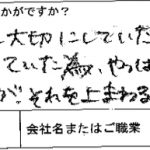 かがですか？
大切にしていた
ていた為、やっぱ
が、それを上まわる
会社名またはご職業